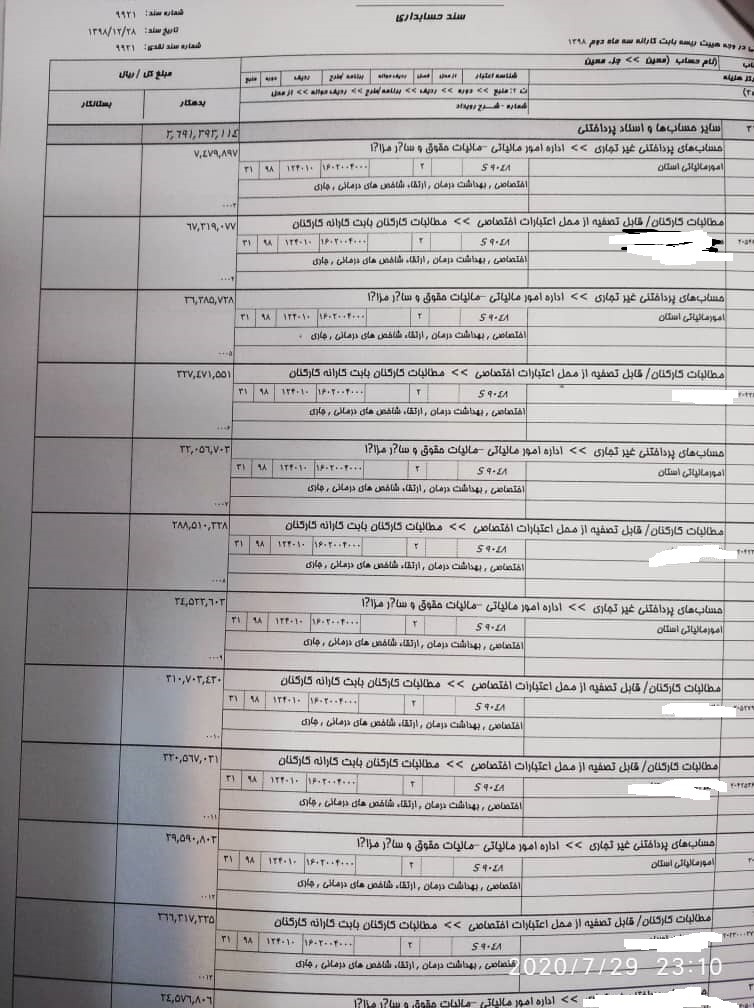 سند حسابداری
شماره سند: ۹۹۲۱
تاریخ سند: ۱۳۹۸/۱۲/۲۸
شماره سند نقدی: ۹۹۲۱
در وجه هیبت ریسه بابت کارانه سه ماه دوم ۱۳۹۸
(نام حساب (معین >> جزء معین
شناسه اعتبار
فصل
ردیف حواله
برنامه/طرح
ردیف
دوره
منبع
مبلغ کل / ریال
منبع >> دوره >> ردیف >> برنامه/طرح >> ردیف حواله >> از محل
شماره - شرح رویداد
بدهکار
بستانکار
سایر حساب‌ها و اسناد پرداختنی
۳,۶۹۱,۳۹۳,۱۱۴
حساب‌های پرداختنی غیر تجاری >> اداره امور مالیاتی -مالیات حقوق و سا?ر مزا?ا
۷,۴۷۹,۸۹۷
امورمالیاتی استان
S۹۰۴۸ ۲ ۱۶۰۲۰۰۴۰۰۰ ۱۲۴۰۱۰ ۹۸ ۳۱
اختصاصی , بهداشت درمان , ارتقاء شاخص های درمانی , جاری
۰۰۰۳
مطالبات کارکنان/ قابل تصفیه از محل اعتبارات اختصاصی >> مطالبات کارکنان بابت کارانه کارکنان
۶۷,۳۱۹,۰۷۷
S۹۰۴۸ ۲ ۱۶۰۲۰۰۴۰۰۰ ۱۲۴۰۱۰ ۹۸ ۳۱
اختصاصی , بهداشت درمان , ارتقاء شاخص های درمانی , جاری
۰۰۰۴
حساب‌های پرداختنی غیر تجاری >> اداره امور مالیاتی -مالیات حقوق و سا?ر مزا?ا
۳۶,۳۸۵,۷۲۸
امورمالیاتی استان
S۹۰۴۸ ۲ ۱۶۰۲۰۰۴۰۰۰ ۱۲۴۰۱۰ ۹۸ ۳۱
اختصاصی , بهداشت درمان , ارتقاء شاخص های درمانی , جاری
۰۰۰۵
مطالبات کارکنان/ قابل تصفیه از محل اعتبارات اختصاصی >> مطالبات کارکنان بابت کارانه کارکنان
۳۲۷,۴۷۱,۵۵۱
S۹۰۴۸ ۲ ۱۶۰۲۰۰۴۰۰۰ ۱۲۴۰۱۰ ۹۸ ۳۱
اختصاصی , بهداشت درمان , ارتقاء شاخص های درمانی , جاری
۰۰۰۶
حساب‌های پرداختنی غیر تجاری >> اداره امور مالیاتی -مالیات حقوق و سا?ر مزا?ا
۳۲,۰۵۶,۷۰۳
امورمالیاتی استان
S۹۰۴۸ ۲ ۱۶۰۲۰۰۴۰۰۰ ۱۲۴۰۱۰ ۹۸ ۳۱
اختصاصی , بهداشت درمان , ارتقاء شاخص های درمانی , جاری
۰۰۰۷
مطالبات کارکنان/ قابل تصفیه از محل اعتبارات اختصاصی >> مطالبات کارکنان بابت کارانه کارکنان
۲۸۸,۵۱۰,۳۲۸
S۹۰۴۸ ۲ ۱۶۰۲۰۰۴۰۰۰ ۱۲۴۰۱۰ ۹۸ ۳۱
اختصاصی , بهداشت درمان , ارتقاء شاخص های درمانی , جاری
۰۰۰۸
حساب‌های پرداختنی غیر تجاری >> اداره امور مالیاتی -مالیات حقوق و سا?ر مزا?ا
۳۴,۵۲۲,۶۰۳
امورمالیاتی استان
S۹۰۴۸ ۲ ۱۶۰۲۰۰۴۰۰۰ ۱۲۴۰۱۰ ۹۸ ۳۱
اختصاصی , بهداشت درمان , ارتقاء شاخص های درمانی , جاری
۰۰۰۹
مطالبات کارکنان/ قابل تصفیه از محل اعتبارات اختصاصی >> مطالبات کارکنان بابت کارانه کارکنان
۳۱۰,۷۰۳,۴۳۰
S۹۰۴۸ ۲ ۱۶۰۲۰۰۴۰۰۰ ۱۲۴۰۱۰ ۹۸ ۳۱
اختصاصی , بهداشت درمان , ارتقاء شاخص های درمانی , جاری
۰۰۱۰
مطالبات کارکنان/ قابل تصفیه از محل اعتبارات اختصاصی >> مطالبات کارکنان بابت کارانه کارکنان
۳۲۰,۵۶۷,۰۲۱
S۹۰۴۸ ۲ ۱۶۰۲۰۰۴۰۰۰ ۱۲۴۰۱۰ ۹۸ ۳۱
اختصاصی , بهداشت درمان , ارتقاء شاخص های درمانی , جاری
۰۰۱۱
حساب‌های پرداختنی غیر تجاری >> اداره امور مالیاتی -مالیات حقوق و سا?ر مزا?ا
۳۹,۵۹۰,۸۰۳
امورمالیاتی استان
S۹۰۴۸ ۲ ۱۶۰۲۰۰۴۰۰۰ ۱۲۴۰۱۰ ۹۸ ۳۱
اختصاصی , بهداشت درمان , ارتقاء شاخص های درمانی , جاری
۰۰۱۲
مطالبات کارکنان/ قابل تصفیه از محل اعتبارات اختصاصی >> مطالبات کارکنان بابت کارانه کارکنان
۳۶۶,۳۱۷,۲۲۵
S۹۰۴۸ ۲ ۱۶۰۲۰۰۴۰۰۰ ۱۲۴۰۱۰ ۹۸ ۳۱
اختصاصی , بهداشت درمان , ارتقاء شاخص های درمانی , جاری
۰۰۱۳
2020/7/29 23:10
حساب‌های پرداختنی غیر تجاری >> اداره امور مالیاتی -مالیات حقوق و سا?ر مزا?ا
۳۴,۵۷۶,۸۰۶